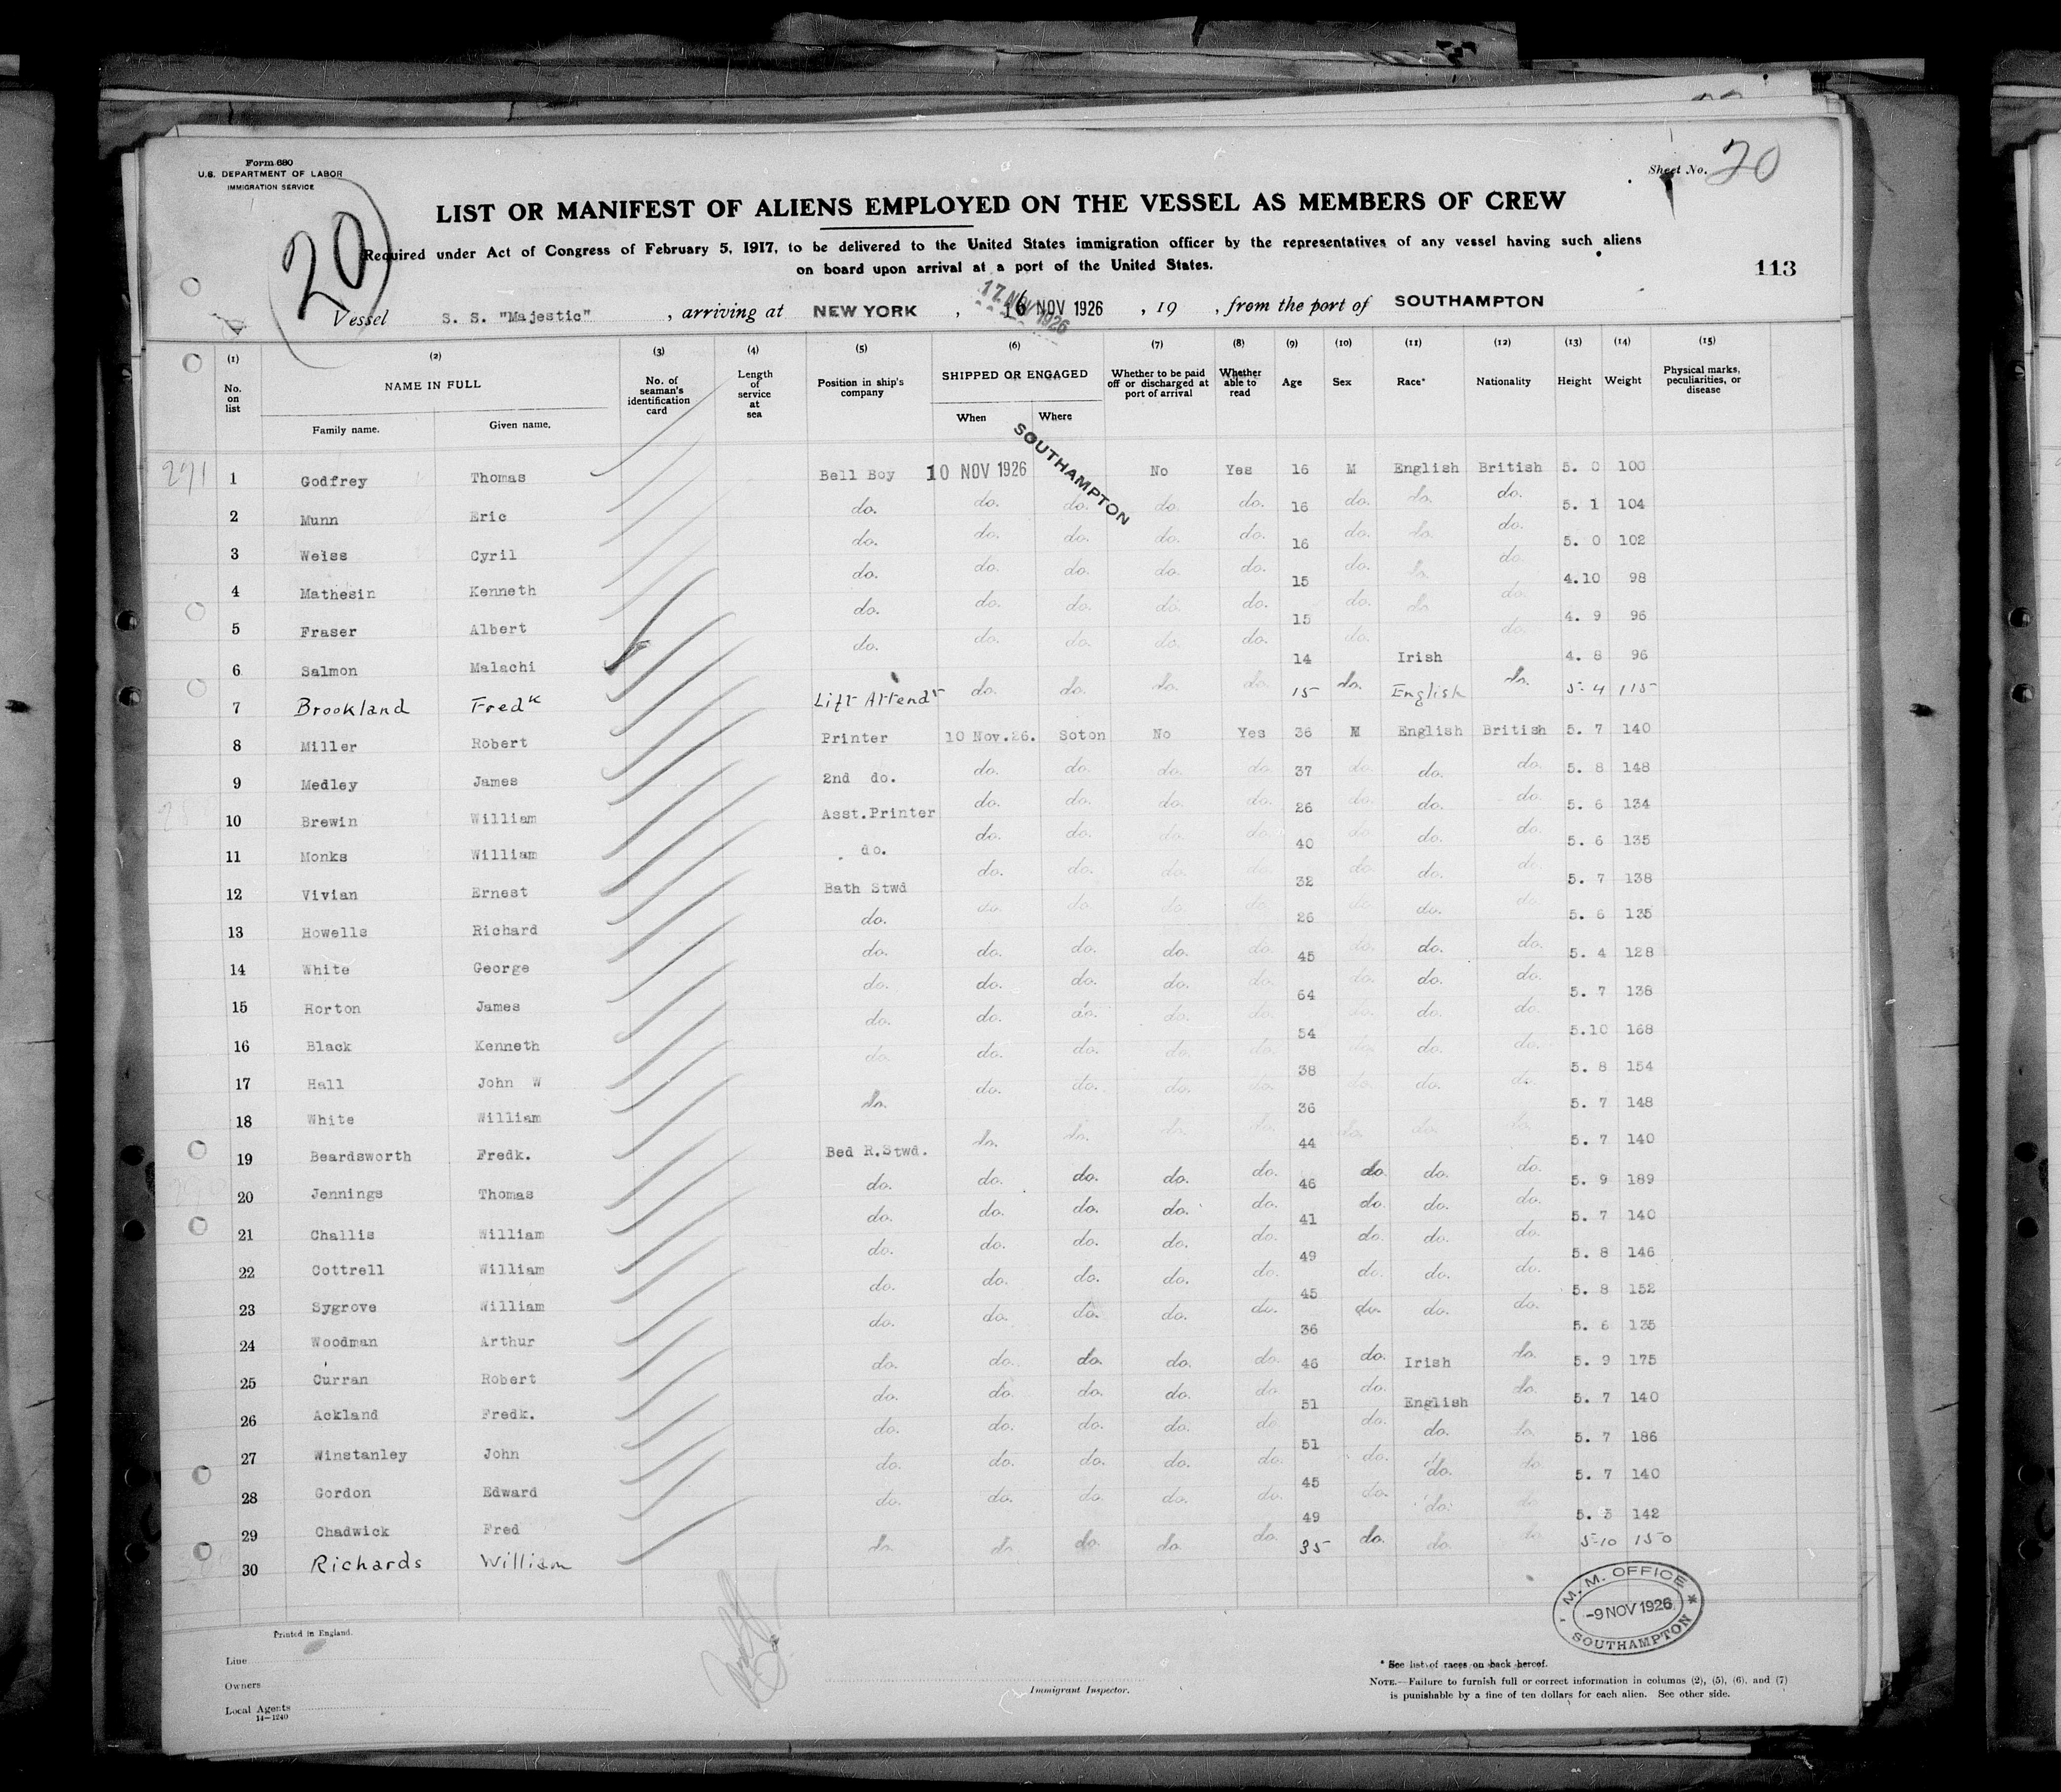 Form 680
U.S. DEPARTMENT OF LABOR
IMMIGRATION SERVICE
Sheet No. 20
20
LIST OR MANIFEST OF ALIENS EMPLOYED ON THE VESSEL AS MEMBERS OF CREW
Required under Act of Congress of February 5, 1917, to be delivered to the United States immigration officer by the representatives of any vessel having such aliens
on board upon arrival at a port of the United States.
113
17 NOV 1926
Vessel S. S. "Majestic" , arriving at NEW YORK , 16 NOV 1926 , 19 , from the port of SOUTHAMPTON
(1) (2) (3) (4) (5) (6) (7) (8) (9) (10) (11) (12) (13) (14) (15)
No. on list NAME IN FULL No. of seaman's identification card Length of service at sea Position in ship's company SHIPPED OR ENGAGED Whether to be paid off or discharged at port of arrival Whether able to read Age Sex Race* Nationality Height Weight Physical marks, peculiarities, or disease
Family name. Given name. When Where
SOUTHAMPTON
291 1 Godfrey Thomas Bell Boy 10 NOV 1926 No Yes 16 M English British 5. 0 100
2 Munn Eric do. do. do. do. do. 16 do. do. do. 5. 1 104
3 Weiss Cyril do. do. do. do. do. 16 do. do. do. 5. 0 102
4 Mathesin Kenneth do. do. do. do. do. 15 do. do. do. 4.10 98
5 Fraser Albert do. do. do. do. do. 15 do. do. do. 4. 9 96
6 Salmon Malachi do. do. do. do. do. 14 do. Irish do. 4. 8 96
7 Brookland Fredk Lift Attendt do. do. do. do. 15 do. English do. 5-4 115
8 Miller Robert Printer 10 Nov.26. Soton No Yes 36 M English British 5. 7 140
9 Medley James 2nd do. do. do. do. do. 37 do. do. do. 5. 8 148
10 Brewin William Asst.Printer do. do. do. do. 26 do. do. do. 5. 6 134
11 Monks William do. do. do. do. do. 40 do. do. do. 5. 6 135
12 Vivian Ernest Bath Stwd do. do. do. do. 32 do. do. do. 5. 7 138
13 Howells Richard do. do. do. do. do. 26 do. do. do. 5. 6 135
14 White George do. do. do. do. do. 45 do. do. do. 5. 4 128
15 Horton James do. do. do. do. do. 64 do. do. do. 5. 7 138
16 Black Kenneth do. do. do. do. do. 54 do. do. do. 5.10 168
17 Hall John W do. do. do. do. do. 38 do. do. do. 5. 8 154
18 White William do. do. do. do. do. 36 do. do. do. 5. 7 148
19 Beardsworth Fredk. Bed R.Stwd. do. do. do. do. 44 do. do. do. 5. 7 140
20 Jennings Thomas do. do. do. do. do. 46 do. do. do. 5. 9 189
21 Challis William do. do. do. do. do. 41 do. do. do. 5. 7 140
22 Cottrell William do. do. do. do. do. 49 do. do. do. 5. 8 146
23 Sygrove William do. do. do. do. do. 45 do. do. do. 5. 8 152
24 Woodman Arthur do. do. do. do. do. 36 do. do. do. 5. 6 135
25 Curran Robert do. do. do. do. do. 46 do. Irish do. 5. 9 175
26 Ackland Fredk. do. do. do. do. do. 51 do. English do. 5. 7 140
27 Winstanley John do. do. do. do. do. 51 do. do. do. 5. 7 186
28 Gordon Edward do. do. do. do. do. 45 do. do. do. 5. 7 140
29 Chadwick Fred do. do. do. do. do. 49 do. do. do. 5. 5 142
30 Richards William do. do. do. do. do. 35 do. do. do. 5-10 150
M. M. OFFICE
-9 NOV 1926
SOUTHAMPTON
Printed in England.
Line
Owners
Local Agents
14—1240
Immigrant Inspector.
* See list of races on back hereof.
NOTE.—Failure to furnish full or correct information in columns (2), (5), (6), and (7)
is punishable by a fine of ten dollars for each alien. See other side.